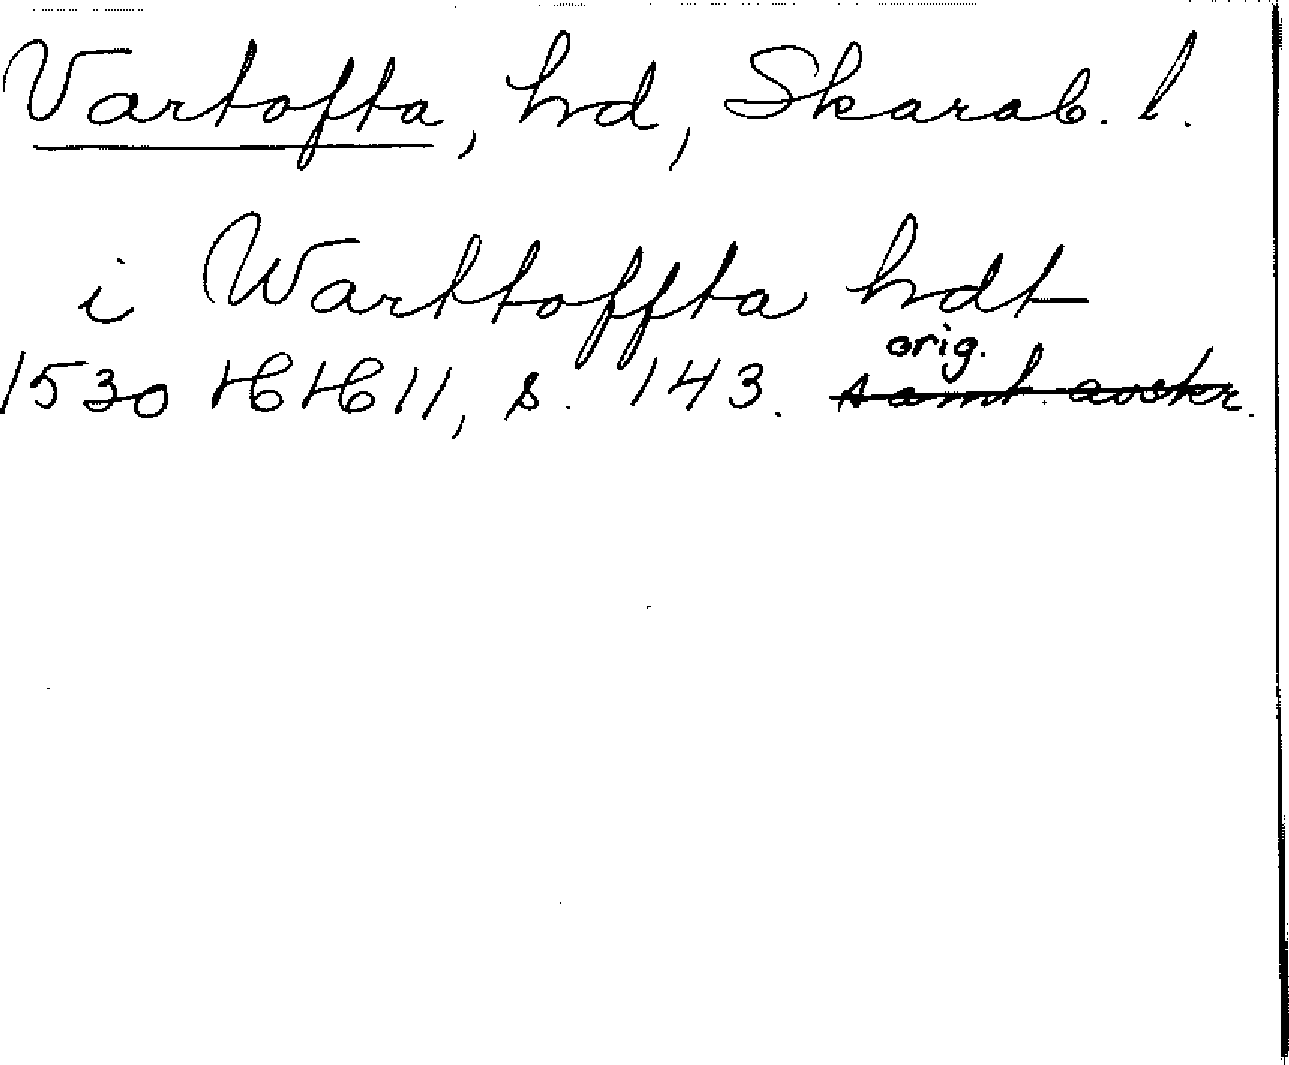 Vartofta, hd, Skarab. l.
i Warttoffta hdt
orig.
1530 HH 11, s. 143. samt. avskr.